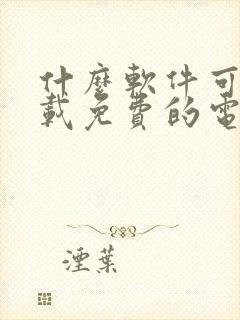 什麼軟件可
載免費的電
湮葉